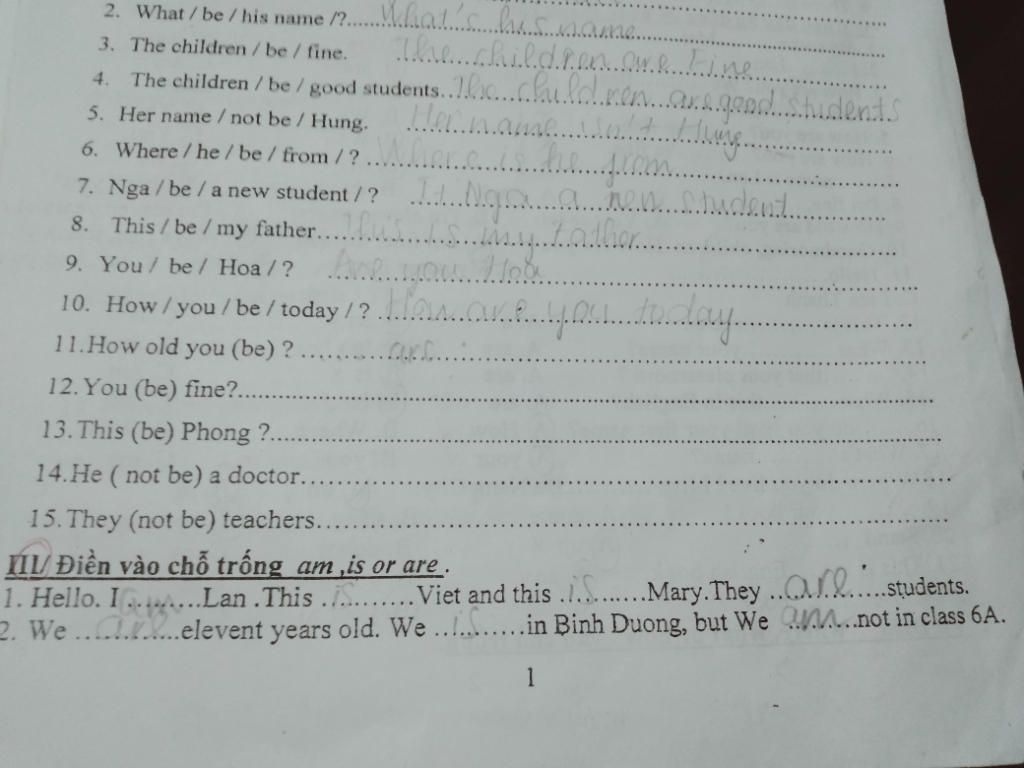 2. What / be / his name /?......What's his name..........
3. The children / be / fine. ..The children are Fine..........
4. The children / be / good students..The children are good students
5. Her name / not be / Hung. ..Her name isn't Hung..........
6. Where / he / be / from / ? ..Where is he from..........
7. Nga / be / a new student / ? ..It Nga a new student..........
8. This / be / my father....This is my father..........
9. You / be / Hoa / ? Are you Hoa..........
10. How / you / be / today / ? How are you today..........
11.How old you (be) ? .......... are ..........
12. You (be) fine?..........
13. This (be) Phong ?..........
14.He ( not be) a doctor..........
15. They (not be) teachers..........
III/ Điền vào chỗ trống am ,is or are .
1. Hello. I am....Lan .This .is.........Viet and this .is.......Mary.They ..are.....students.
2. We ...are...elevent years old. We ..is.......in Binh Duong, but We am....not in class 6A.
1